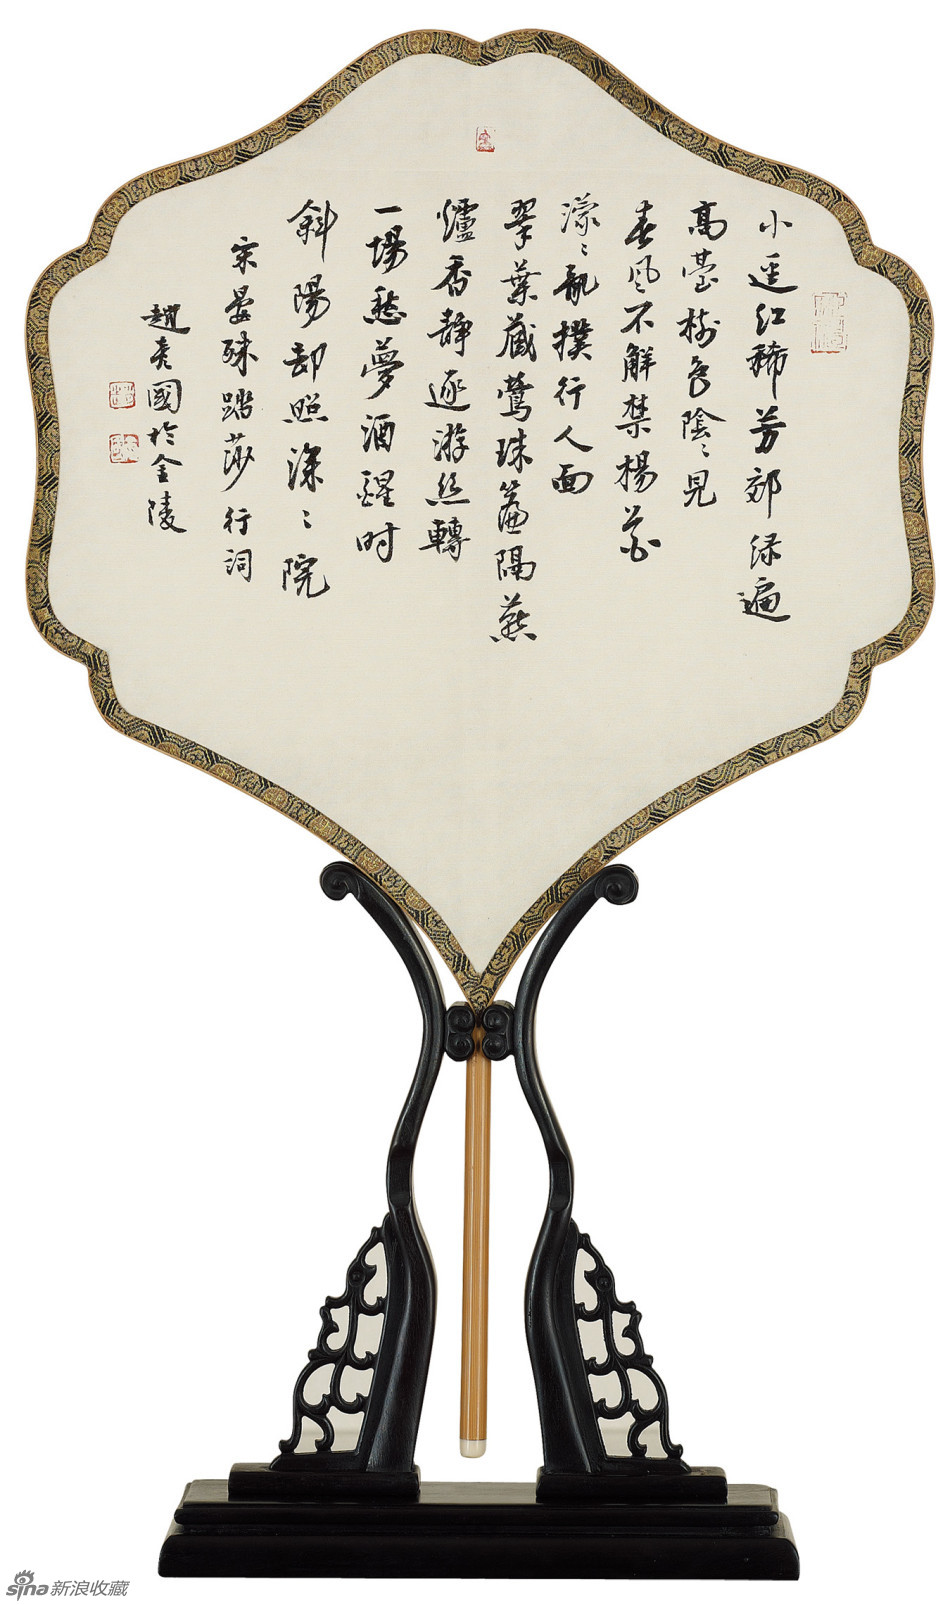 小逕紅稀芳郊绿遍
高臺樹色陰〻見
春風不解禁楊花
濛〻亂撲行人面
翠葉藏鶯珠簾隔燕
爐香靜逐游丝轉
一場愁夢酒醒时
斜陽卻照深〻院
宋晏殊踏莎行詞
趙亮國於金陵
sina新浪收藏